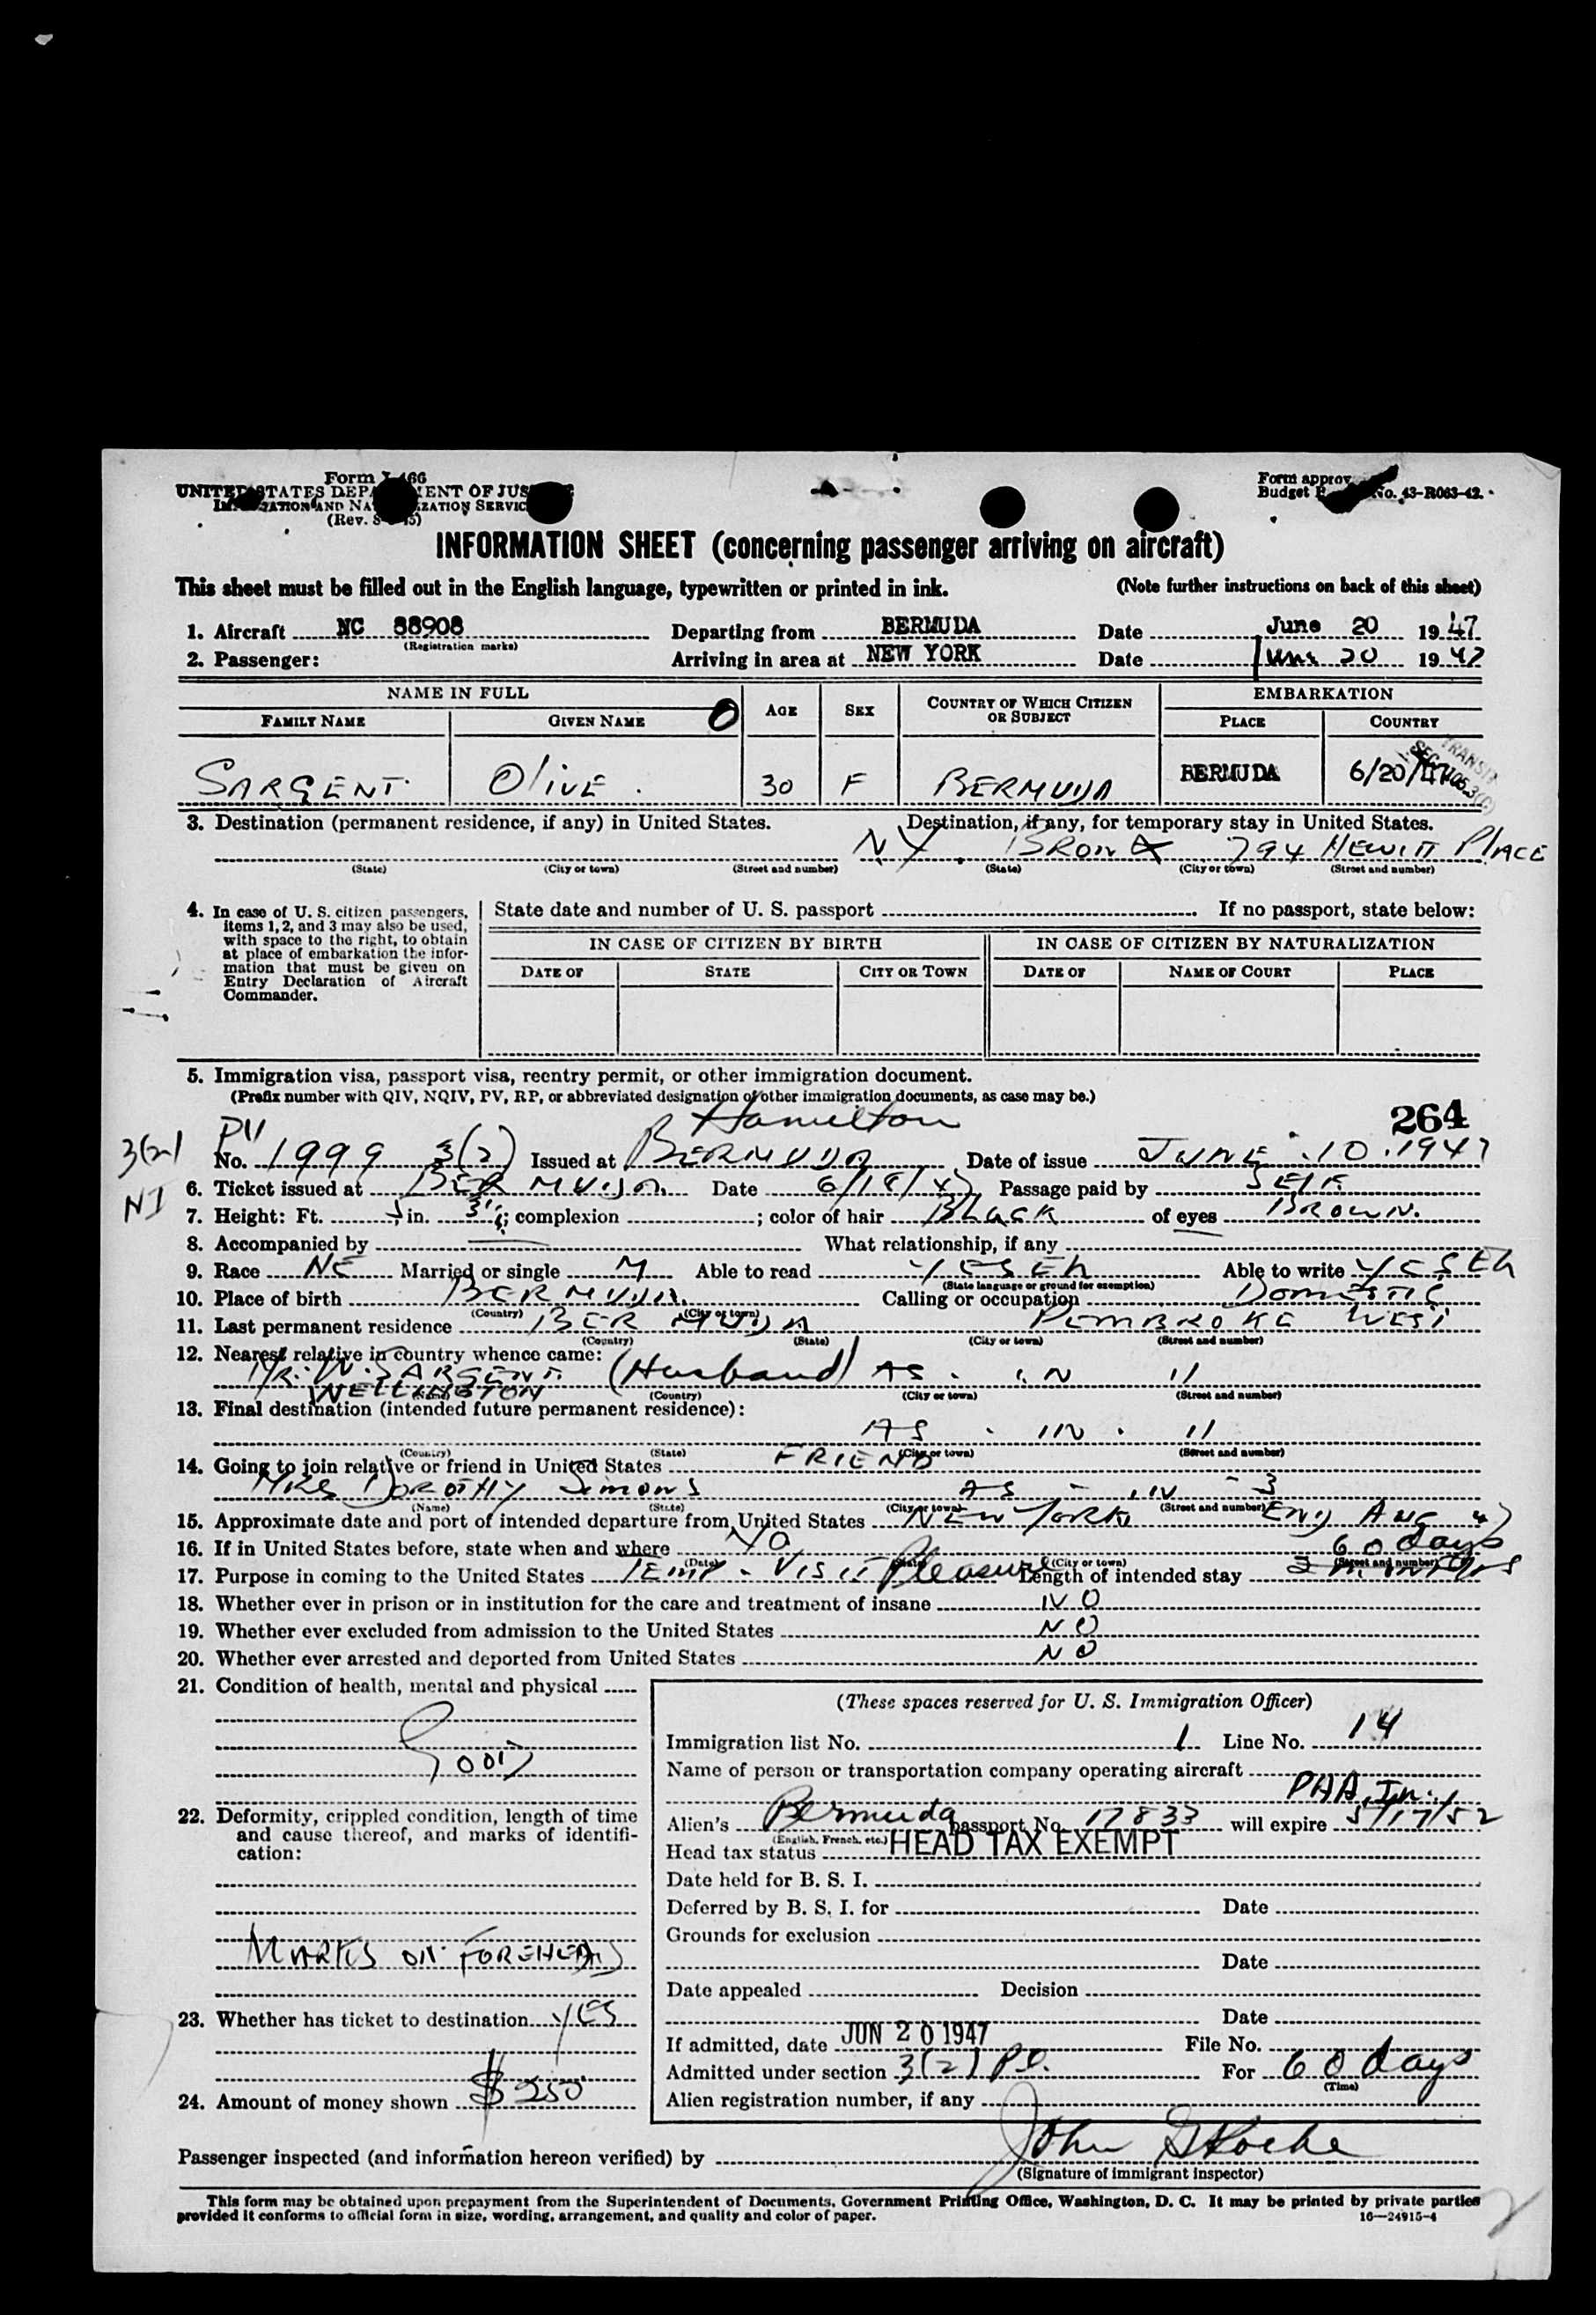 Form I-466
UNITED STATES DEPARTMENT OF JUSTICE
IMMIGRATION AND NATURALIZATION SERVICE
(Rev.
Form approv
Budget No. 43-R063-42.
INFORMATION SHEET (concerning passenger arriving on aircraft)
This sheet must be filled out in the English language, typewritten or printed in ink. (Note further instructions on back of this sheet)
1. Aircraft NC 88908 Departing from BERMUDA Date June 20 1947
(Registration marks)
2. Passenger: Arriving in area at NEW YORK Date June 20 1947
NAME IN FULL AGE SEX COUNTRY OF WHICH CITIZEN OR SUBJECT EMBARKATION
FAMILY NAME GIVEN NAME O PLACE COUNTRY
SARGENT Olive. 30 F BERMUDA BERMUDA 6/20/47
TRANSIT
3. Destination (permanent residence, if any) in United States. Destination, if any, for temporary stay in United States.
NY. BRONX 794 HEWITT PLACE
(State) (City or town) (Street and number) (State) (City or town) (Street and number)
4. In case of U. S. citizen passengers, items 1, 2, and 3 may also be used, with space to the right, to obtain at place of embarkation the information that must be given on Entry Declaration of Aircraft Commander.
State date and number of U. S. passport If no passport, state below:
IN CASE OF CITIZEN BY BIRTH IN CASE OF CITIZEN BY NATURALIZATION
DATE OF STATE CITY OR TOWN DATE OF NAME OF COURT PLACE
5. Immigration visa, passport visa, reentry permit, or other immigration document.
(Prefix number with QIV, NQIV, PV, RP, or abbreviated designation of other immigration documents, as case may be.)
Hamilton 264
3(2) PV
No. 1999 3(2) Issued at BERMUDA Date of issue JUNE. 10. 1947
NI
6. Ticket issued at BERMUDA Date 6/18/47 Passage paid by SELF
7. Height: Ft. 5 in. 3½; complexion ; color of hair BLACK of eyes BROWN.
8. Accompanied by What relationship, if any
9. Race NE Married or single M Able to read YES EN Able to write YES EN
(State language or ground for exemption)
10. Place of birth BERMUDA Calling or occupation DOMESTIC
(Country) (City or town)
11. Last permanent residence BERMUDA PEMBROKE WEST
(Country) (State) (City or town) (Street and number)
12. Nearest relative in country whence came:
MR. W. SARGENT (Husband) AS. IN 11
WELLINGTON
(Name) (Country) (City or town) (Street and number)
13. Final destination (intended future permanent residence):
AS. IN. 11
(Country) (State) (City or town) (Street and number)
14. Going to join relative or friend in United States FRIEND
MRS DOROTHY Simons AS - IN - 3
(Name) (State) (City or town) (Street and number)
15. Approximate date and port of intended departure from United States NEW YORK END AUG 47
16. If in United States before, state when and where NO 60 days
(Date) (City or town) (Street and number)
17. Purpose in coming to the United States TEMP. VISIT Pleasure Length of intended stay 2 MONTHS
18. Whether ever in prison or in institution for the care and treatment of insane NO
19. Whether ever excluded from admission to the United States NO
20. Whether ever arrested and deported from United States NO
21. Condition of health, mental and physical
GOOD
22. Deformity, crippled condition, length of time and cause thereof, and marks of identification:
MARKS ON FOREHEAD
23. Whether has ticket to destination YES
24. Amount of money shown $250
(These spaces reserved for U. S. Immigration Officer)
Immigration list No. 1 Line No. 14
Name of person or transportation company operating aircraft
PAA, In.
Alien's Bermuda passport No. 17833 will expire 5/17/52
(English, French, etc.)
Head tax status HEAD TAX EXEMPT
Date held for B. S. I.
Deferred by B. S. I. for Date
Grounds for exclusion
Date
Date appealed Decision
Date
If admitted, date JUN 20 1947 File No.
Admitted under section 3(2) P.l. For 60 days
(Time)
Alien registration number, if any
Passenger inspected (and information hereon verified) by John G Roche
(Signature of immigrant inspector)
This form may be obtained upon prepayment from the Superintendent of Documents, Government Printing Office, Washington, D. C. It may be printed by private parties
provided it conforms to official form in size, wording, arrangement, and quality and color of paper. 16—24915-4